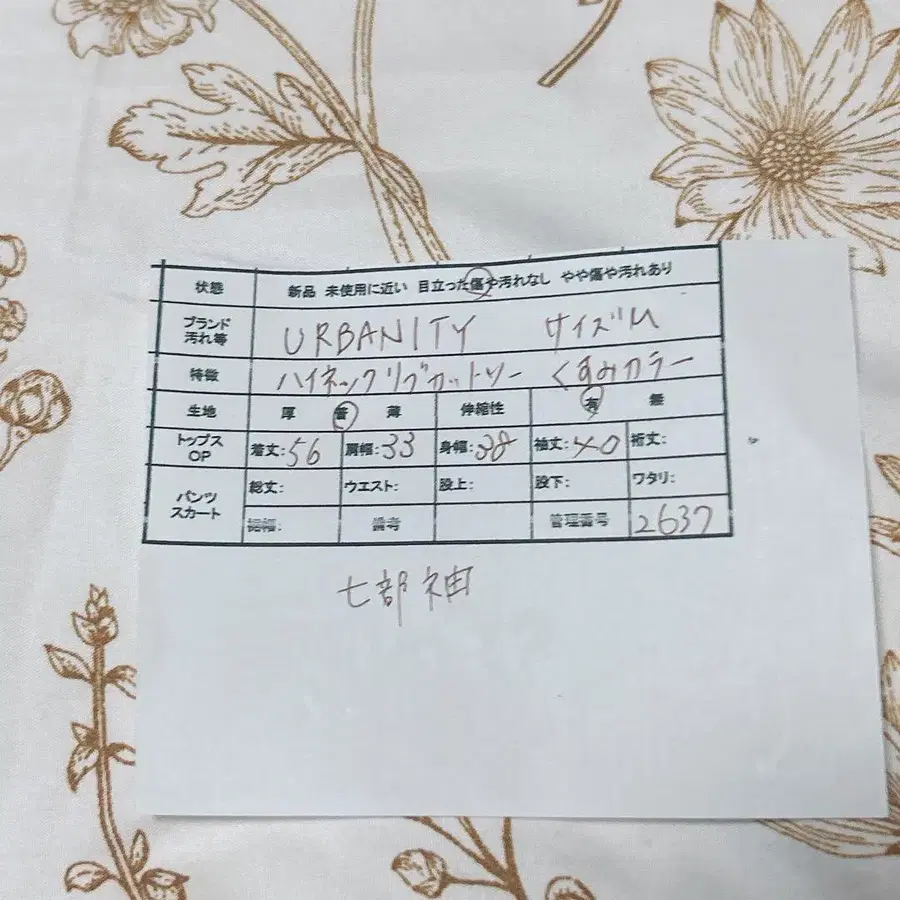 状態 新品 未使用に近い 目立った傷や汚れなし やや傷や汚れあり
ブランド URBANITY サイズM
汚れ等
特徴 ハイネックリブカットソー くすみカラー
生地 厚 普 薄 伸縮性 有 無
トップス 着丈:56 肩幅:33 身幅:38 袖丈:40 裄丈:
OP
パンツ 総丈: ウエスト: 股上: 股下: ワタリ:
スカート 裾幅: 備考 管理番号 2637
七部袖